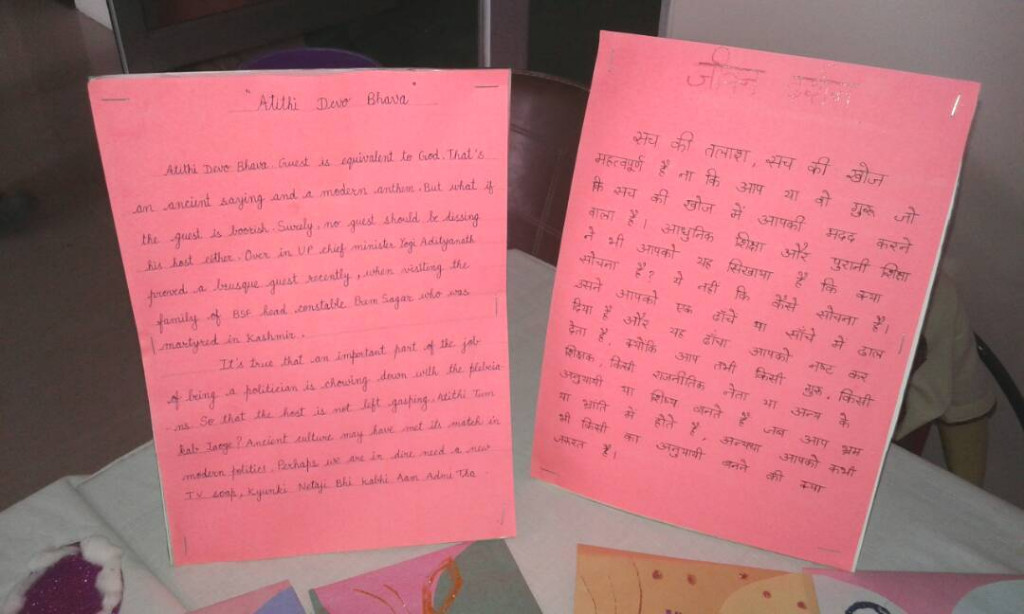 "Atithi Devo Bhava"
Atithi Devo Bhava. Guest is equivalent to God. That's
an ancient saying and a modern anthem. But what if
the guest is boorish. Surely, no guest should be dissing
his host either. Over in UP chief minister Yogi Adityanath
proved a brusque guest recently, when visiting the
family of BSF head constable Prem Sagar who was
martyred in Kashmir.
It's true that an important part of the job
of being a politician is chowing down with the plebeia-
ns. So that the host is not left gasping, Atithi Tum
kab Jaoge? Ancient culture may have met its match in
modern politics. Perhaps we are in dire need a new
T.V. soap, Kyunki Netaji Bhi Kabhi Aam Admi Tha
सच की तलाश, सच की खोज
महत्वपूर्ण है ना कि आप या वो गुरू जो
कि सच की खोज में आपकी मदद करने
वाला है। आधुनिक शिक्षा और पुरानी शिक्षा
ने भी आपको यह सिखाया है कि क्या
सोचना है? ये नहीं कि कैसे सोचना है।
उसने आपको एक ढाँचे या साँचे में ढाल
दिया है और यह ढांचा आपको नष्ट कर
देता है, क्योंकि आप तभी किसी गुरू, किसी
शिक्षक, किसी राजनीतिक नेता या अन्य के
अनुयायी या शिष्य बनते है जब आप भ्रम
या भ्रांति में होते है, अन्यथा आपको कभी
भी किसी का अनुयायी बनने की क्या
जरूरत है।